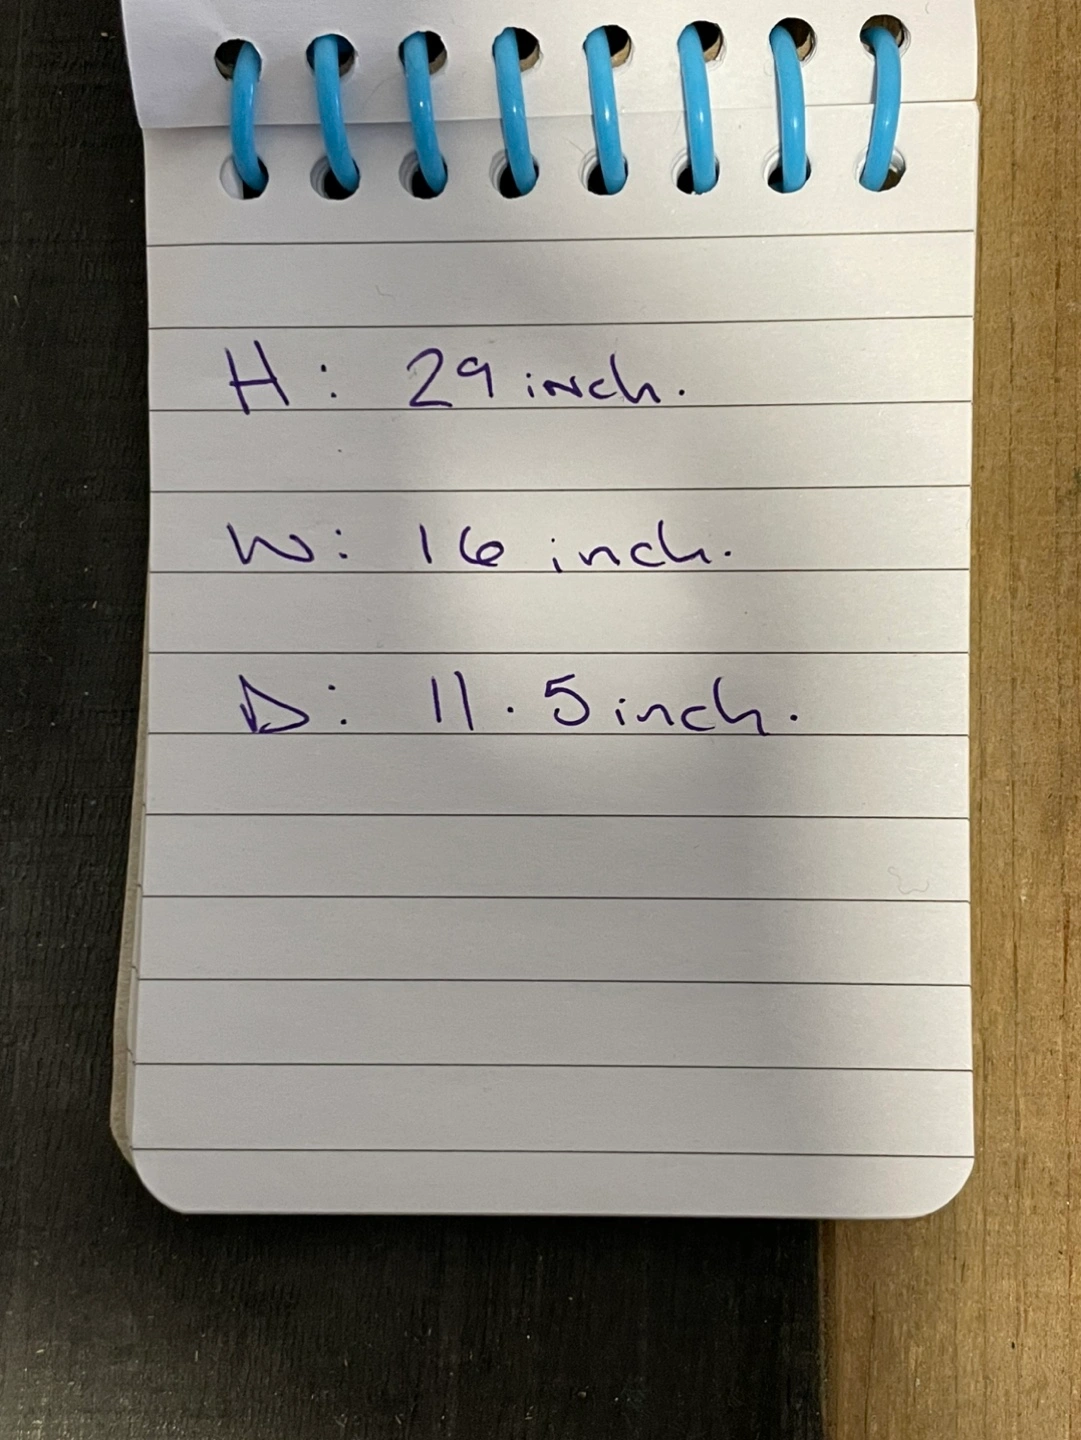 H: 29 inch.
W: 16 inch.
D: 11.5 inch.